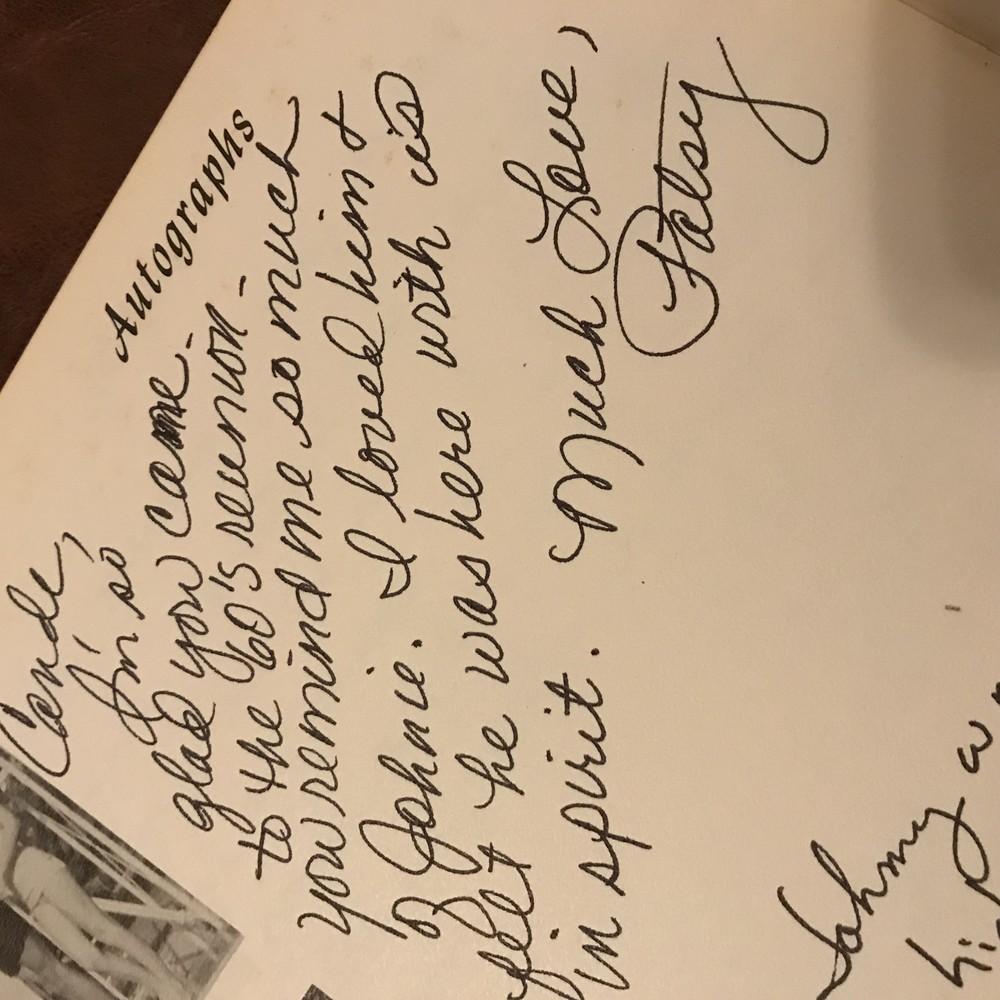 Autographs
Cande,
I'm so
glad you came
to the '60's reunion -
you remind me so much
of Johnie. I loved him &
felt he was here with us
in spirit.
Much Love,
Patsy